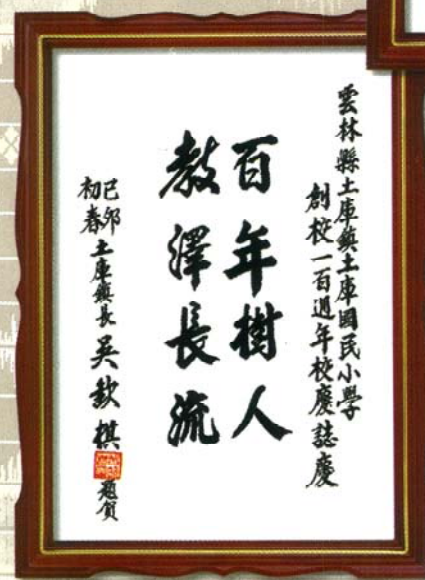 雲林縣土庫鎮土庫國民小學
創校一百週年校慶誌慶
百年樹人
教澤長流
己卯
初春
土庫鎮長 吳欽棋 題賀